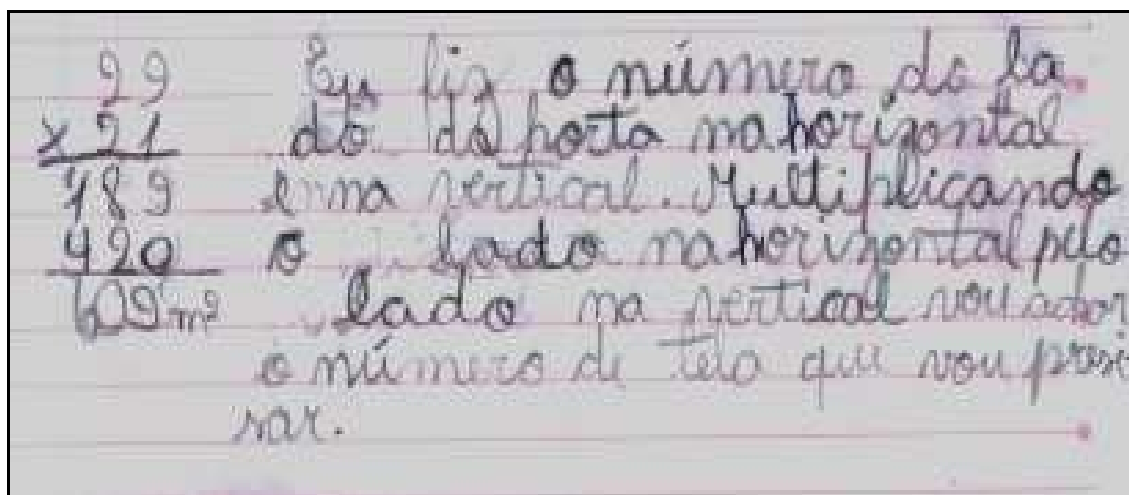 29
x 21
189
420
609 m²
Eu fiz o número do la
do da porta na horizontal
e na vertical. Multiplicando
o lado na horizontal pelo
lado na vertical vou achar
o número de tela que vou presi
sar.